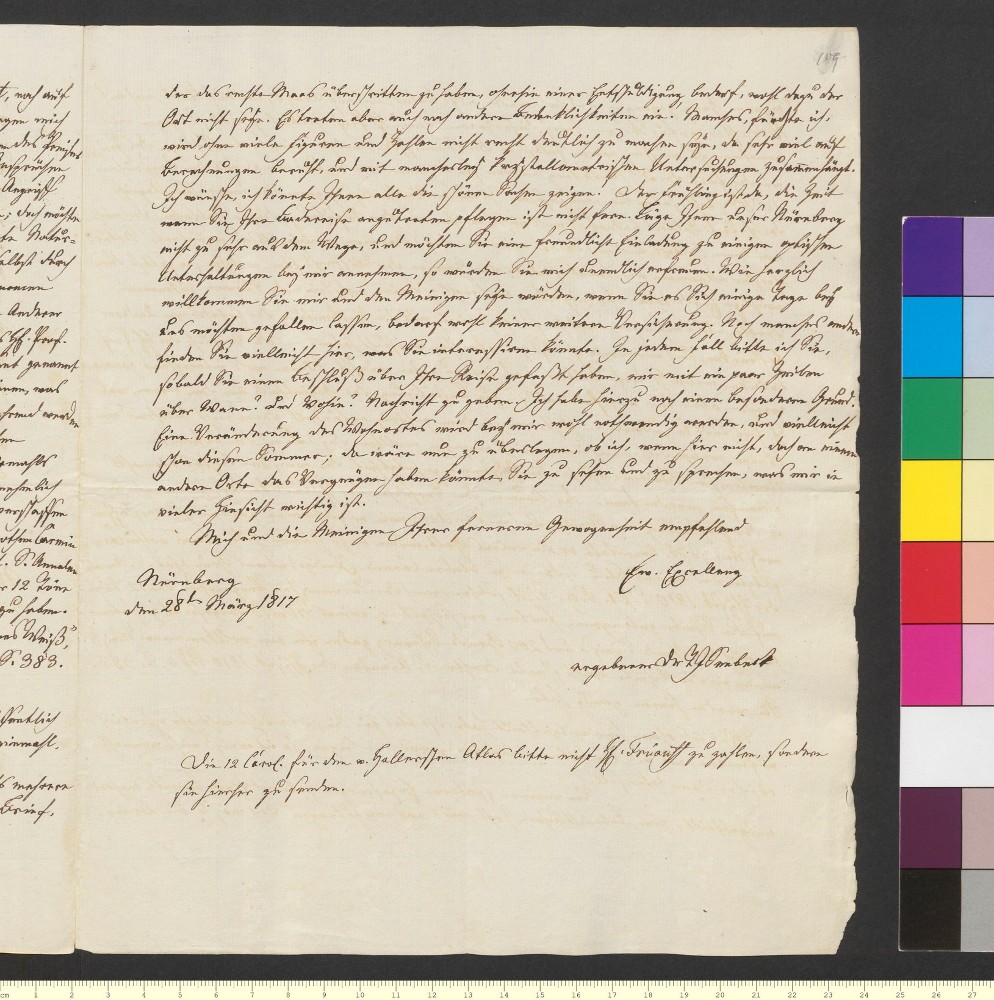 t, noch auf
mich
des
Angriff
; doch möchte
te Natur-
selbst durch
Anderer
H. Prof.
genannt
, was
werden
rothen Carmin
S. Annalen
12 Töne
zu haben.
Weiß,
S. 383.
einmahl.
mehrere
Brief.
159
der das rechte Maas überschritten zu haben, ohnehin einer Entschuldigung bedarf, wohl dazu der
Ort nicht sey. Es treten aber auch noch andere Bedenklichkeiten ein. Manches, fürchte ich,
wird ohne viele Figuren und Zahlen nicht recht deutlich zu machen seyn, da sehr viel auf
Berechnungen beruht, und mit mancherley krystallometrischen Untersuchungen zusammenhängt.
Ich wünsche, ich könnte Ihnen alle die schönen Sachen zeigen. Der Frühling ist da, die Zeit
wenn Sie Ihre Badereise anzutreten pflegen ist nicht fern. Läge Ihnen unser Nürnberg
nicht zu sehr aus dem Wege, und möchten Sie eine freundliche Einladung zu einigen optischen
Unterhaltungen bey mir annehmen, so würden Sie mich unendlich erfreuen. Wie herzlich
willkommen Sie mir und den Meinigen seyn würden, wenn Sie es Sich einige Tage bey
uns möchten gefallen lassen, bedarf wohl keiner weitern Versicherung. Noch manches andere
finden Sie vielleicht hier, was Sie interessiren könnte. In jedem Fall bitte ich Sie,
sobald Sie einen Beschluß über Ihre Reise gefaßt haben, mir mit ein paar Zeilen
über Wann? und Wohin? Nachricht zu geben. Ich habe hierzu noch einen besonderen Grund.
Eine Veränderung des Wohnortes wird bey mir wohl nothwendig werden, und vielleicht
schon diesen Sommer; da wäre nun zu überlegen, ob ich, wenn hier nicht, doch an einem
andern Orte das Vergnügen haben könnte, Sie zu sehen und zu sprechen, was mir in
vieler Hinsicht wichtig ist.
Mich und die Meinigen Ihrer ferneren Gewogenheit empfehlend
Ew. Excellenz
Nürnberg
den 28ten März 1817
ergebener Dr TJ Seebeck
Die 12 Carol. für den v. Hallerschen Atlas bitte nicht H. Frauenh zu zahlen, sondern
sie hierher zu senden.